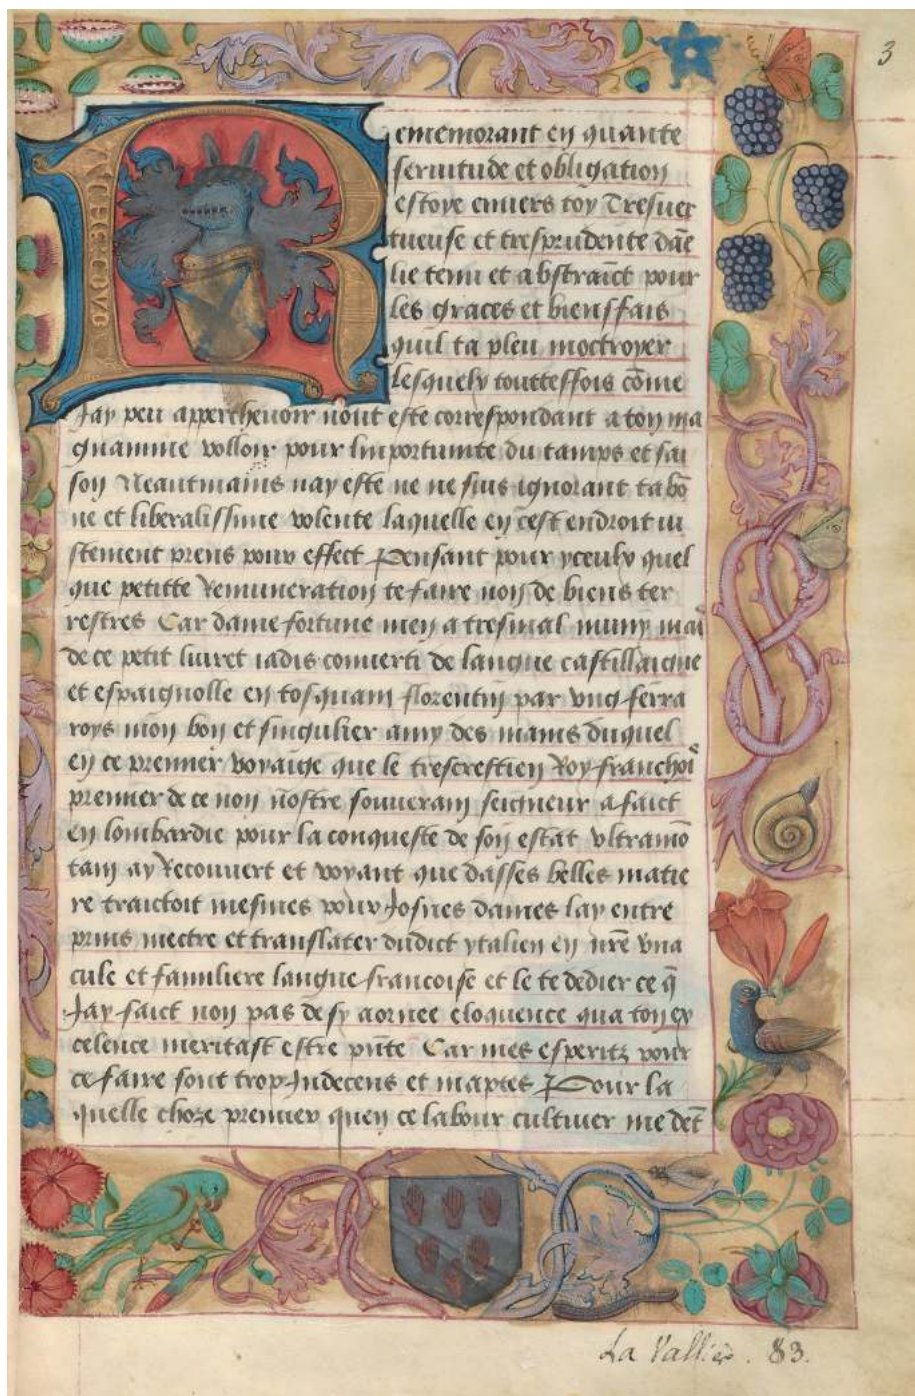 3
Rememorant en quante
seruitude et obligation
estoye enuers toy Tresuer
tueuse et tresprudente dāe
lie tenu et abstrainct pour
les graces et biensfais
quil ta pleu moctroyer
lesquelx touttesfois cōme
Jay peu apperchevoir nont este correspondant a toy ma
gnanime volloir pour limportunite du tamps et sai
son Neautmains nay este ne ne suis ignorant ta bō
ne et liberalissime volente laquelle en cest endroit iu
stement prens pour effect Pensant pour yceulx quel
que petitte Remuneration te faire non de biens ter
restres Car dame fortune men a tresmal muny mai
de ce petit liuret iadis conuerti de langue castillaigne
et espaignolle en tosquam florentin par vng ferra
roys mon bon et singulier amy des mains duquel
en ce premier voyaige que le trescrestien Roy franchoi
premier de ce non nostre souuerain seigneur a faict
en lombardie pour la conqueste de son estat vltramō
tain ay Recouuert et voyant que dasses belles matie
re traictoit mesmes pour Josnes dames lay entre
prins mectre et translater dudict ytalien en nr̄e vna
cule et familiere langue francoise et le te dedier ce q̄
Jay faict non pas de sy aornee eloquence qua ton ex
celence meritast estre pn̄te Car mes esperitz pour
ce faire sont trop Indecens et inaptes Pour la
quelle choze premier quen ce labour cultiuer me det̄
La Vallière. 83.